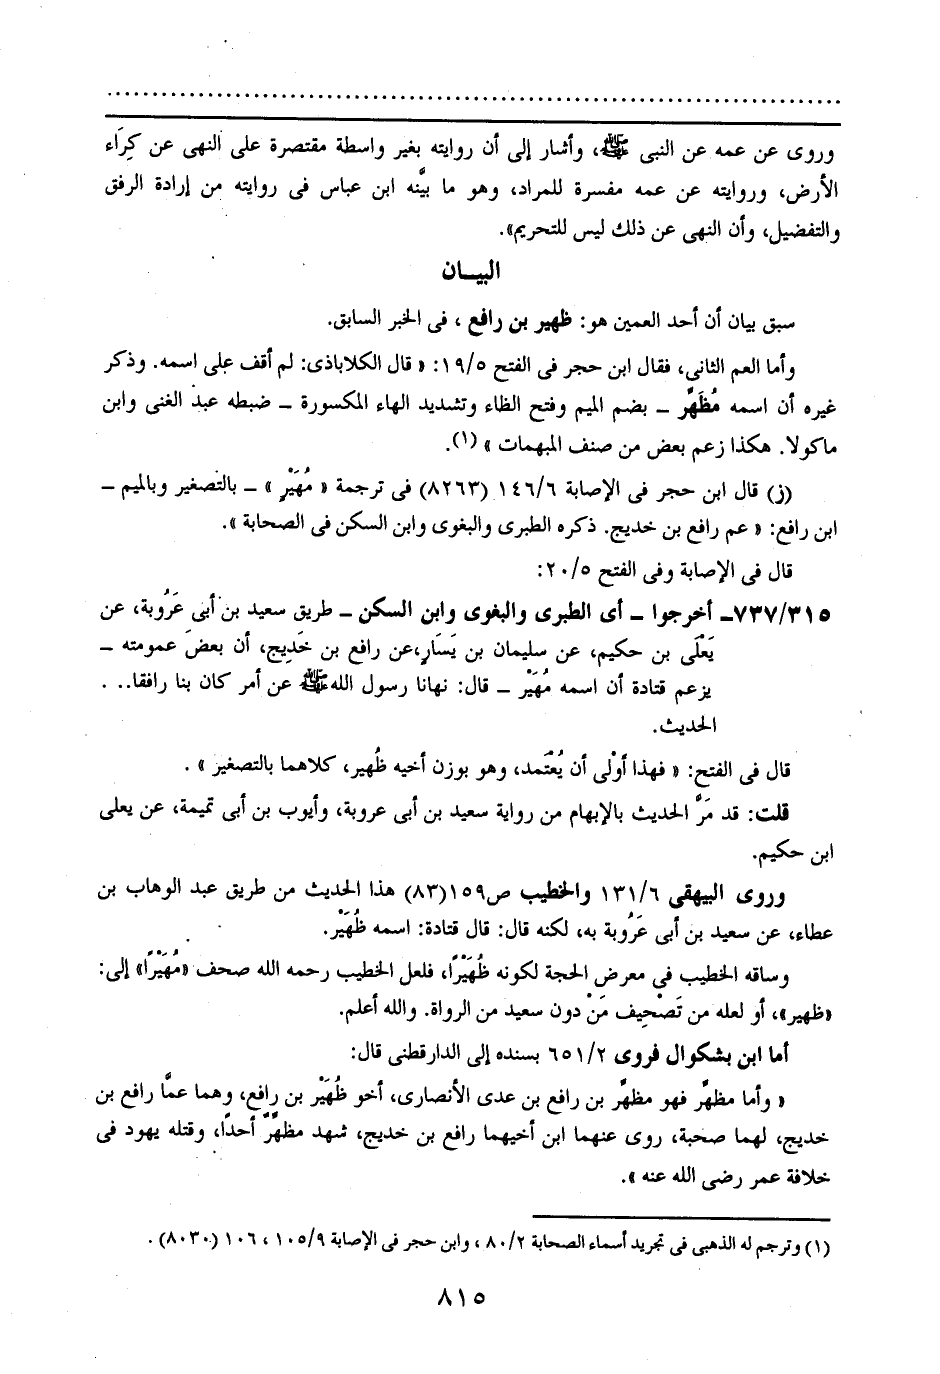 وروى عن عمه عن النبى ﷺ، وأشار إلى أن روايته بغير واسطة مقتصرة على النهى عن كِرَاء
الأرض، وروايته عن عمه مفسرة للمراد، وهو ما بيَّنه ابن عباس فى روايته من إرادة الرفق
والتفضيل، وأن النهى عن ذلك ليس للتحريم».
البيـــان
سبق بيان أن أحد العمين هو: ظهير بن رافع ، فى الخبر السابق.
وأما العم الثانى، فقال ابن حجر فى الفتح ١٩/٥: « قال الكلاباذى: لم أقف على اسمه. وذكر
غيره أن اسمه مُظَهِّر ــ بضم الميم وفتح الظاء وتشديد الهاء المكسورة ــ ضبطه عبد الغنى وابن
ماكولا. هكذا زعم بعض من صنف المبهمات » (١).
(ز) قال ابن حجر فى الإصابة ١٤٦/٦ (٨٢٦٣) فى ترجمة « مُهَيْر » ــ بالتصغير وبالميم ــ
ابن رافع: « عم رافع بن خديج. ذكره الطبرى والبغوى وابن السكن فى الصحابة ».
قال فى الإصابة وفى الفتح ٢٠/٥:
٧٣٧/٣١٥ــ أخرجوا ــ أى الطبرى والبغوى وابن السكن ــ طريق سعيد بن أبى عَرُوبة، عن
يَعْلَى بن حكيم، عن سليمان بن يَسَار،عن رافع بن خَدِيج، أن بعضَ عمومته ــ
يزعم قتادة أن اسمه مُهَيْر ــ قال: نهانا رسول الله ﷺ عن أمر كان بنا رافقا.. .
الحديث.
قال فى الفتح: « فهذا أوْلى أن يُعْتَمد، وهو بوزن أخيه ظُهير، كلاهما بالتصغير » .
قلت: قد مَرَّ الحديث بالإبهام من رواية سعيد بن أبى عروبة، وأيوب بن أبى تميمة، عن يعلى
ابن حكيم.
وروى البيهقى ١٣١/٦ والخطيب ص١٥٩(٨٣) هذا الحديث من طريق عبد الوهاب بن
عطاء، عن سعيد بن أبى عَرُوبة به، لكنه قال: قال قتادة: اسمه ظُهَيْر.
وساقه الخطيب فى معرض الحجة لكونه ظُهَيْرًا، فلعل الخطيب رحمه الله صحف «مُهَيْرًا» إلى:
«ظهير»، أو لعله من تَصْحِيف مَنْ دون سعيد من الرواة. والله أعلم.
أما ابن بشكوال فروى ٦٥١/٢ بسنده إلى الدارقطنى قال:
« وأما مظهِّر فهو مظهِّر بن رافع بن عدى الأنصارى، أخو ظُهَيْر بن رافع، وهما عمَّا رافع بن
خديج، لهما صحبة، روى عنهما ابن أخيهما رافع بن خديج، شهد مظهِّرٌ أحدًا، وقتله يهود فى
خلافة عمر رضى الله عنه ».
(١) وترجم له الذهبى فى تجريد أسماء الصحابة ٨٠/٢ ، وابن حجر فى الإصابة ١٠٥/٩ ، ١٠٦ (٨٠٣٠) .
٨١٥